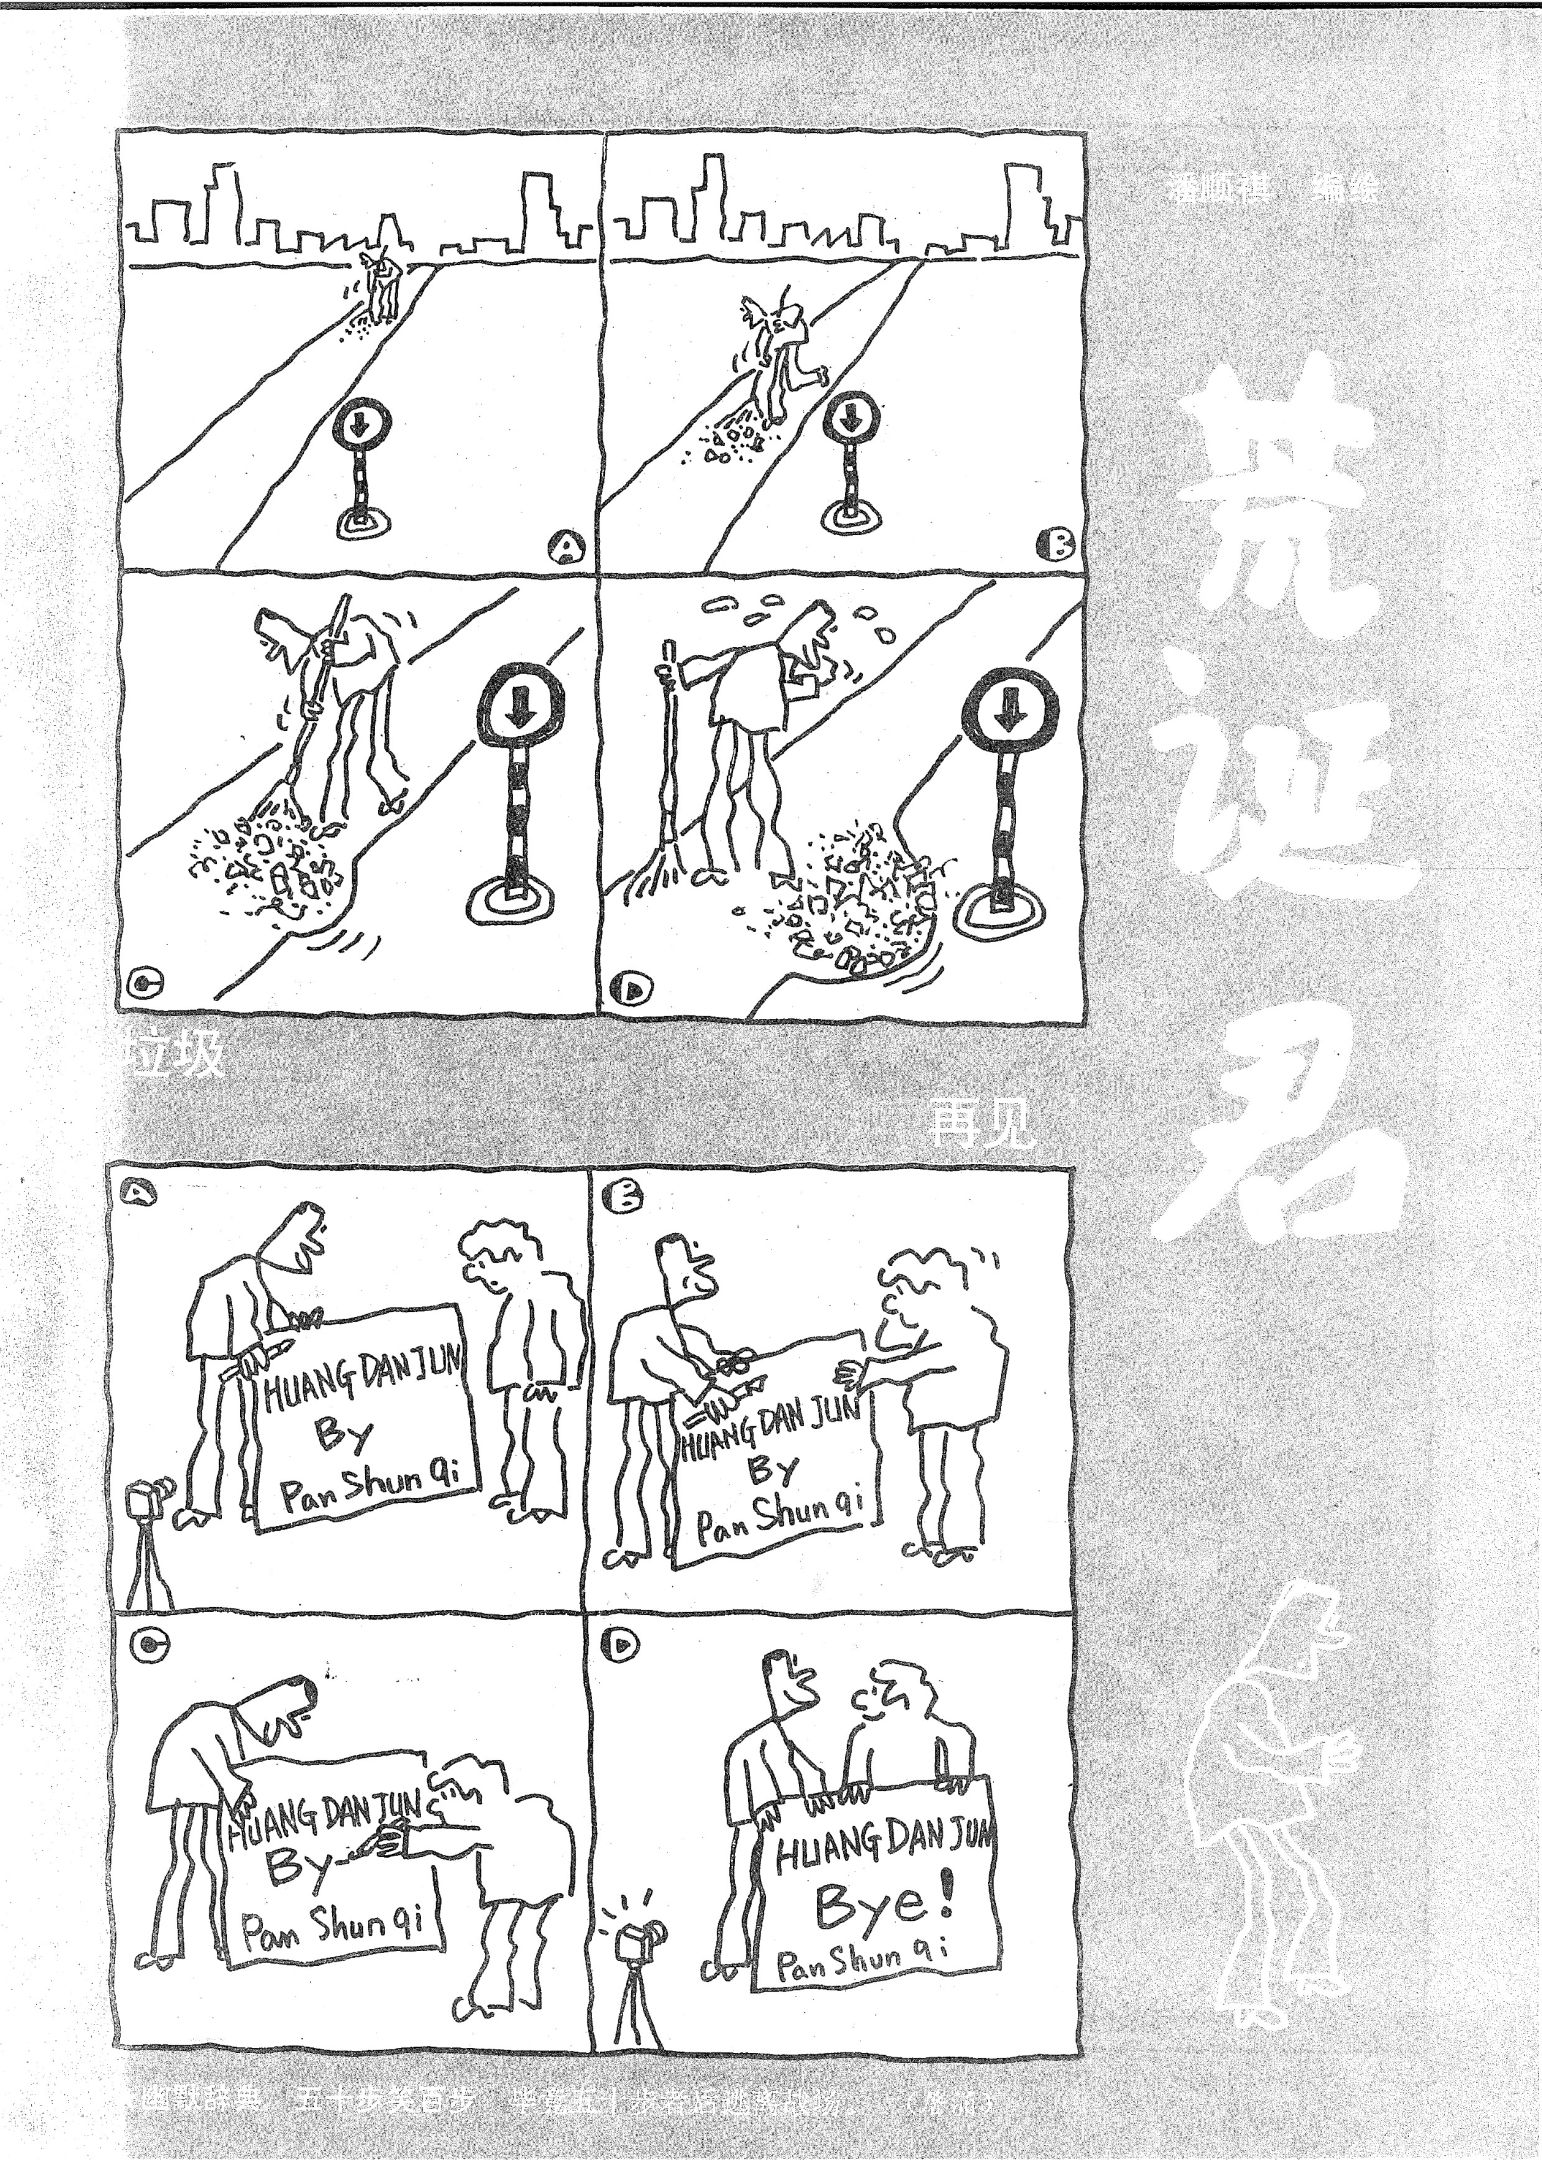 潘顺祺 编绘
荒诞君
A
B
C
D
垃圾
再见
A
HUANG DAN JUN
By
Pan Shun Qi
B
HUANG DAN JUN
By
Pan Shun Qi
C
HUANG DAN JUN
By
Pan Shun Qi
D
HUANG DAN JUN
Bye!
Pan Shun Qi
幽默辞典 五十步笑百步 毕竟五十步者后逃离战场。